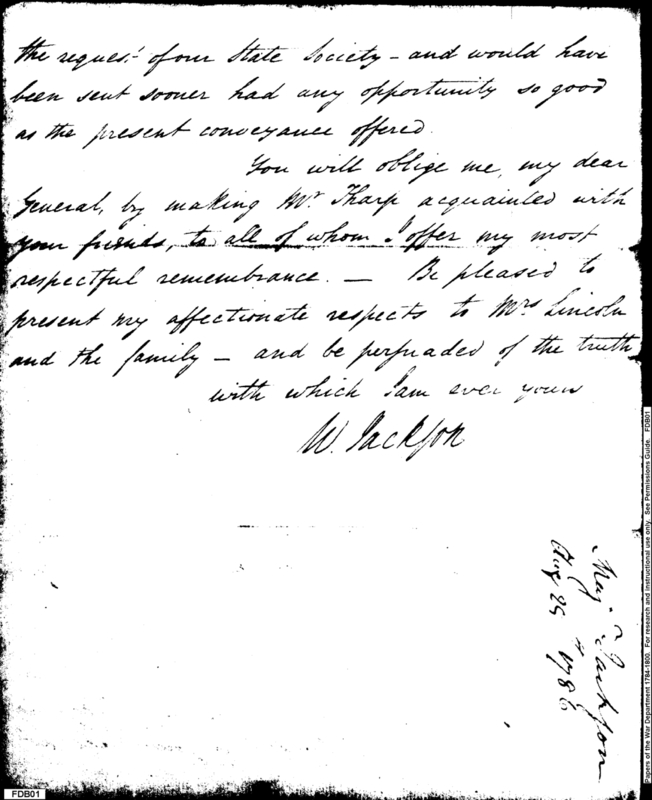 the request of our State Society – and would have
been sent sooner had any opportunity so good
as the present conveyance offered.
You will oblige me, my dear
General, by making Mr Tharp acquainted with
your friends, to all of whom I offer my most
respectful remembrance. — Be pleased to
present my affectionate respects to Mrs Lincoln
and the family – and be persuaded of the truth
with which I am ever yours
W. Jackson
Maj. Jackson
Aug 25 1786
Papers of the War Department 1784-1800. For research and instructional use only. See Permissions Guide. FDB01
FDB01